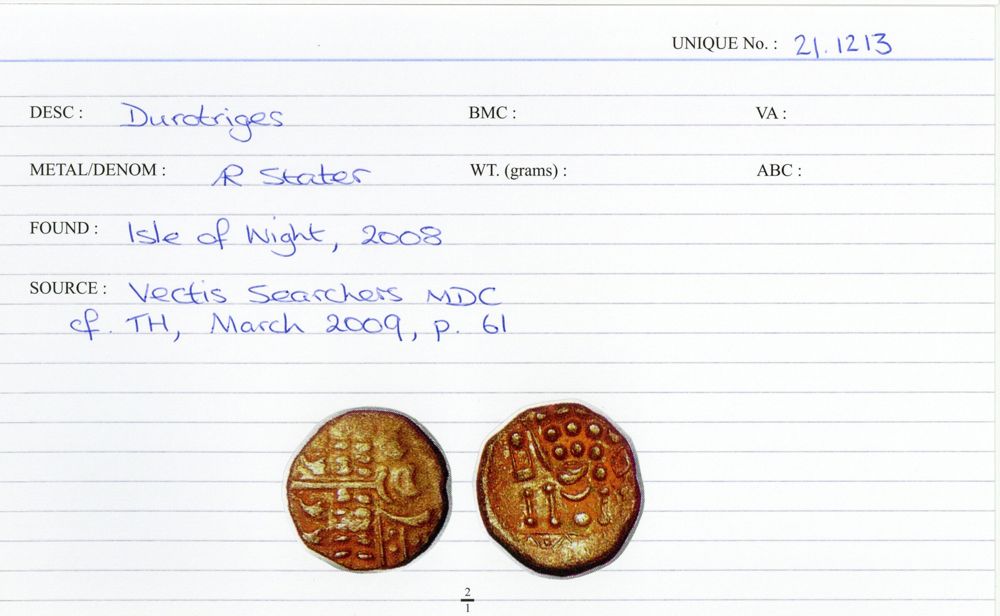 UNIQUE No. : 21.1213
DESC : Durotriges BMC : VA :
METAL/DENOM : AR Stater WT. (grams) : ABC :
FOUND : Isle of Wight, 2008
SOURCE : Vectis Searchers MDC
cf. TH, March 2009, p. 61
2
1